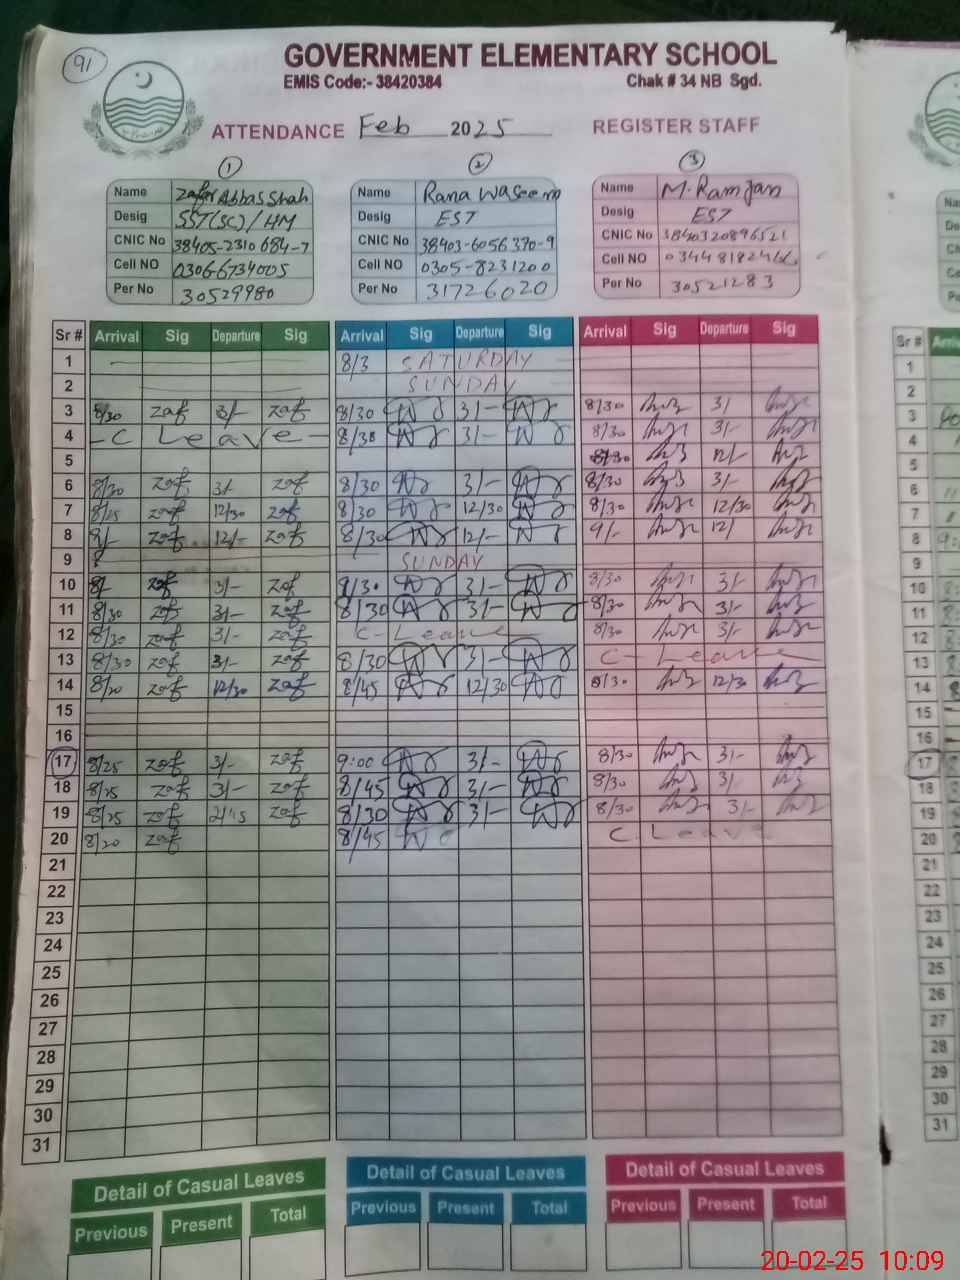 91
GOVERNMENT ELEMENTARY SCHOOL
EMIS Code:- 38420384 Chak # 34 NB Sgd.
ATTENDANCE Feb 2025 REGISTER STAFF
1 2 3
Name Zafar Abbas Shah Name Rana Waseem Name M. Ramzan
Desig SST(SC)/HM Desig EST Desig EST
CNIC No 38405-2310684-7 CNIC No 38403-6056370-9 CNIC No 3840320896521
Cell NO 03066734005 Cell NO 0305-8231200 Cell NO
Per No 30529980 Per No 31726020 Per No 30521283
Sr # Arrival Sig Departure Sig Arrival Sig Departure Sig Arrival Sig Departure Sig
1 8/3 SATURDAY
2 SUNDAY
3 8/30 zaf 3/- zaf 8/30 3/- 8/30 3/
4 - C Leave - 8/30 3/- 8/30 3/-
5 8/30 12/-
6 8/30 zaf 3/- zaf 8/30 3/- 8/30 3/-
7 8/25 zaf 12/30 zaf 8/30 12/30 8/30 12/30
8 8/- zaf 12/- zaf 8/30 12/- 9/- 12/
9 SUNDAY
10 8/ zaf 3/- zaf 8/30 3/- 8/30 3/-
11 8/30 zaf 3/- zaf 8/30 3/- 8/30 3/-
12 8/30 zaf 3/- zaf C-Leave 8/30 3/-
13 8/30 zaf 3/- zaf 8/30 3/- C-Leave
14 8/20 zaf 12/30 zaf 8/45 12/30 8/30 12/30
15
16
17 8/25 zaf 3/- zaf 9:00 3/- 8/30 3/-
18 8/25 zaf 3/- zaf 8/45 3/- 8/30 3/
19 8/25 zaf zaf 8/30 3/- 8/30 3/-
20 8/20 zaf 8/45 C.Leave
21
22
23
24
25
26
27
28
29
30
31
Detail of Casual Leaves Detail of Casual Leaves Detail of Casual Leaves
Previous Present Total Previous Present Total Previous Present Total
Sr #
1
2
3
4
5
6
7
8
9
10
11
12
13
14
15
16
17
18
19
20
21
22
23
24
25
26
27
28
29
30
31
20-02-25 10:09